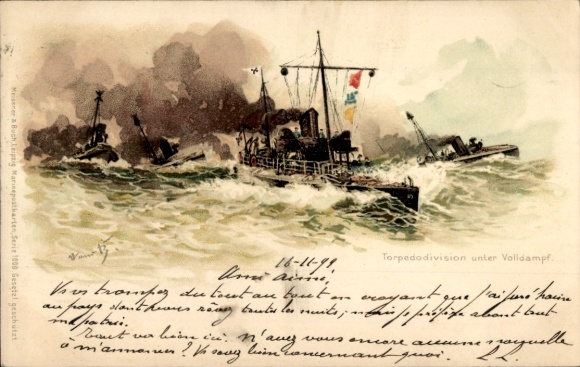 Meissner & Buch, Leipzig Marinepostkarten, Serie 1000 Gesetzl. Geschützt
Torpedodivision unter Volldampf.
16-11-99
Ami aimé
Vous trompez du tout au tout en croyant que j'ai juré haine
au pays dont vous rêvez toutes les nuits; mais je préfère avant tout
ma patrie.
Tout va bien ici. N'avez vous encore aucune nouvelle
à m'annoncer? Vs savez bien concernant quoi. L. L.